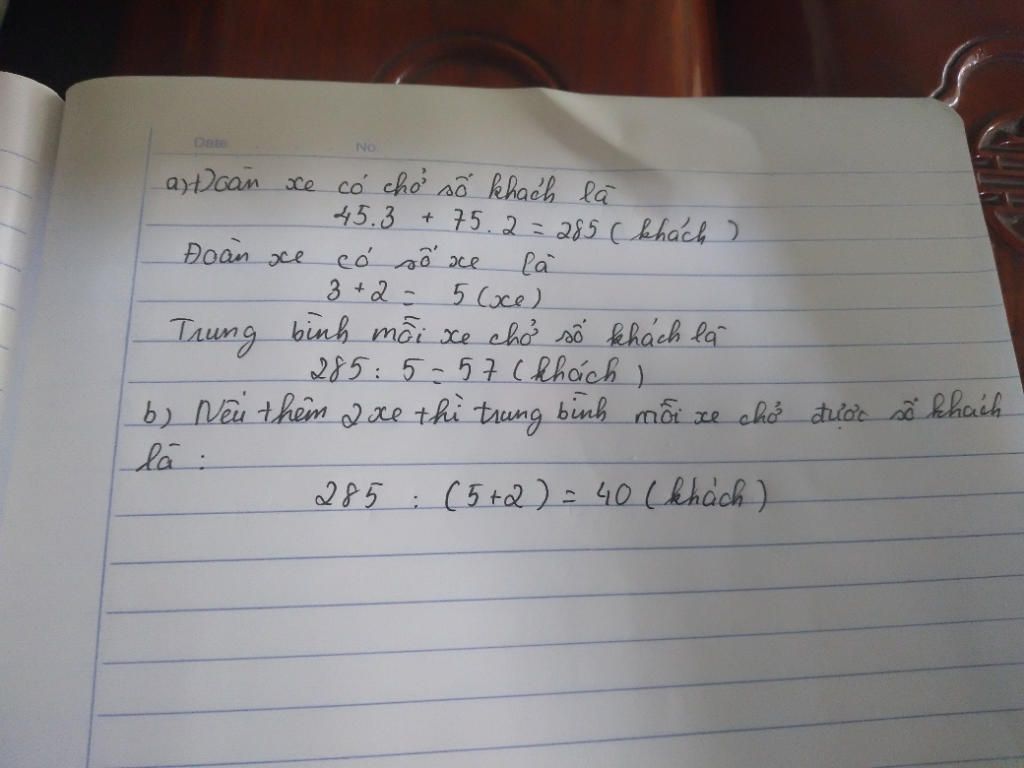 Date No
a) Đoàn xe có chở số khách là
45.3 + 75.2 = 285 ( khách )
Đoàn xe có số xe là
3 + 2 = 5 (xe)
Trung bình mỗi xe chở số khách là
285 : 5 = 57 ( khách )
b) Nếu thêm 2 xe thì trung bình mỗi xe chở được số khách
là :
285 : (5+2) = 40 ( khách )